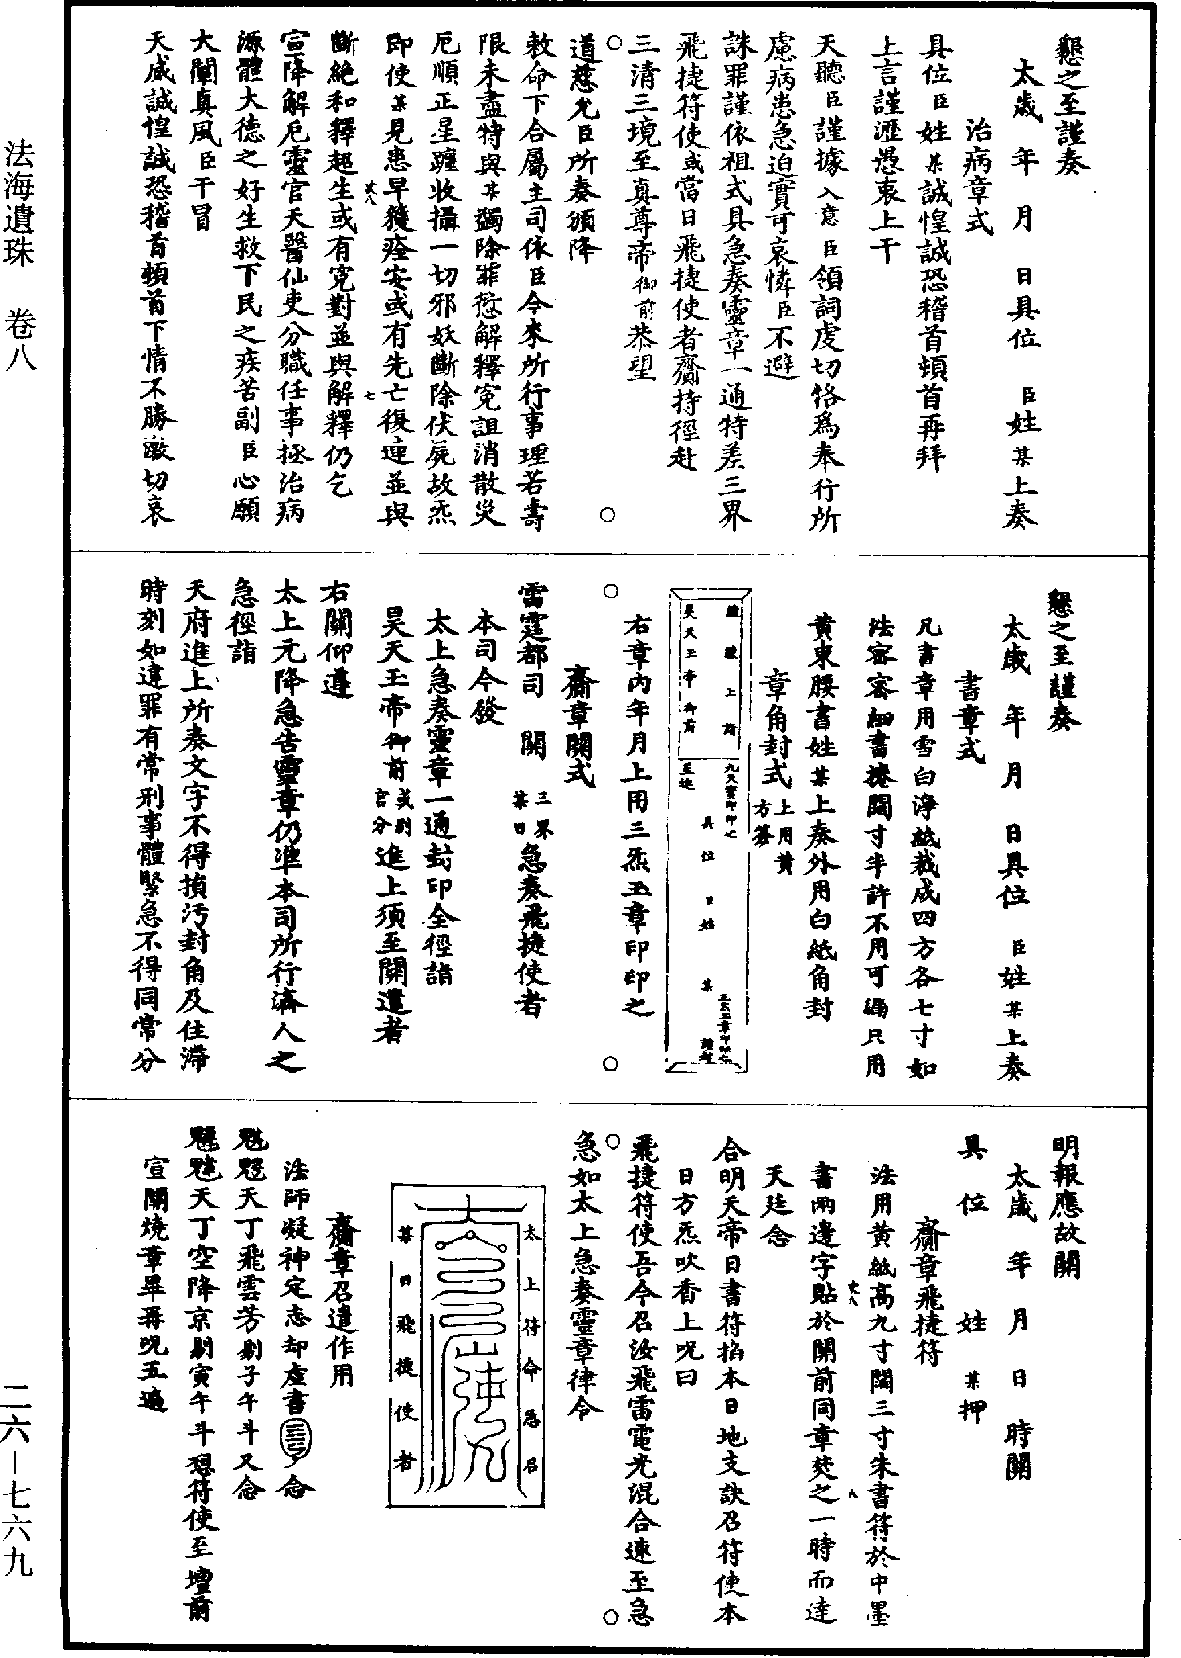 懇之至謹奏
太歲 年 月 日具位 臣姓某上奏
治病章式
具位臣姓某誠惶誠恐稽首頓首再拜
上言謹瀝愚衷上干
天聽臣謹據入意臣領詞虔切恪爲奉行所
慮病患急迫實可哀憐臣不避
誅罪謹依祖式具急奏靈章一通特差三界
飛捷符使或當日飛捷使者齎持徑赴
三清三境至真尊帝御前恭望
道慈允臣所奏頒降
敕命下合屬主司依臣今來所行事理若壽
限未盡特與某蠲除罪愆解釋冤詛消散災
厄順正星躔收攝一切邪妖斷除伏屍故炁
即使某見患早獲痊安或有先亡復連並與
斷絕和釋超生或有冤對並與解釋仍乞
宣降解厄靈官天醫仙吏分職任事拯治病
源體大德之好生救下民之疾苦副臣心願
大闡真風臣干冒
天威誠惶誠恐稽首頓首下情不勝激切哀
懇之至謹奏
太歲 年 月 日具位 臣姓某上奏
書章式
凡書章用雪白淨紙裁成四方各七寸如
法密密細書捲闊寸半許不用可漏只用
黃束腰書姓某上奏外用白紙角封
章角封式上用黃方簽
謹謹上詣
昊天玉帝御前
九天寶印印之
至進
具位 臣姓 某
玉炁玉章印印之
謹封
右章內年月上用三炁玉章印印之
齎章關式
雷霆都司 關 三界某日急奏飛捷使者
本司今發
太上急奏靈章一通封印全徑詣
昊天玉帝御前或別官分進上須至關遣者
右關仰遵
太上元降急告靈章仍準本司所行濟人之
急徑詣
天府進上所奏文字不得損污封角及住滯
時刻如違罪有常刑事體緊急不得同常分
明報應故關
太歲 年 月 日 時關
具 位 姓 某押
齎章飛捷符
法用黃紙高九寸闊三寸朱書符於中墨
書兩邊字貼於關前同章焚之一時而達
天廷念
合明天帝日書符掐本日地支訣召符使本
日方炁吹香上咒曰
飛捷符使吾今召汝飛雷電光混合速至急
急如太上急奏靈章律令
太上符命急召
某日飛捷使者
齎章召遣作用
法師凝神定志却虛書念
魁𩲃天丁飛雲芳剔子午斗又念
天丁空降京剔寅午斗想符使至壇前
宣關燒章畢再咒五遍
法海遺珠 卷八
二六—七六九